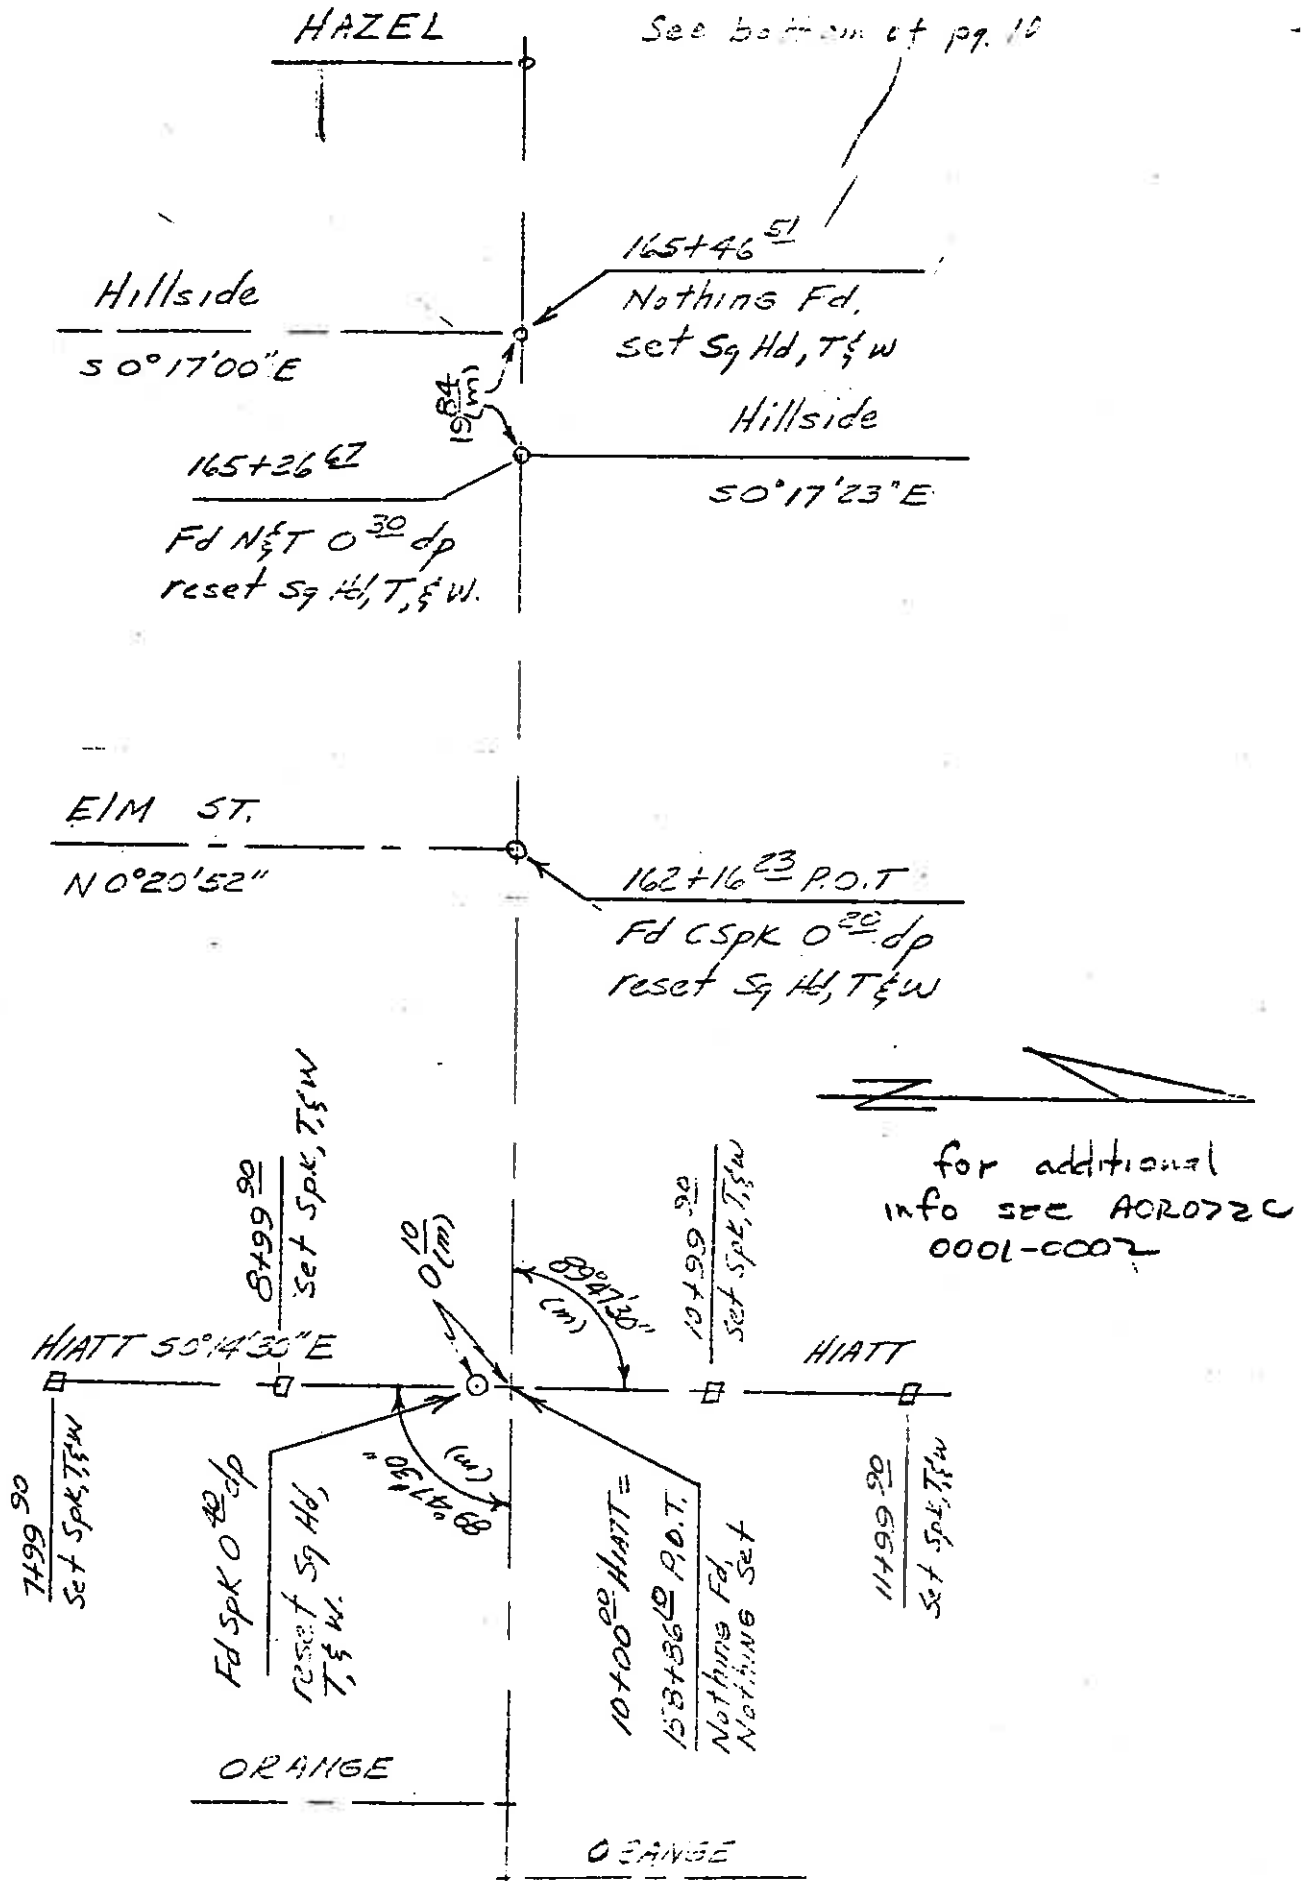 HAZEL
See bottom of pg. 10
165+46 51
Nothing Fd.
set Sq Hd, T, & W
Hillside
S 0°17'00"E
19 84 (m)
Hillside
S 0°17'23"E
165+26 67
Fd N&T 0 30 dp
reset Sq Hd, T, & W.
ElM ST.
N 0°20'52"
162+16 23 P.O.T
Fd CSpk 0 20 dp
reset Sq Hd, T & W
N
for additional
info see
0001-0002
8+99 90
Set Spk, T, & W
0 10 (m)
89°47'30"
(m)
10+99 90
Set Spk, T, & W
HIATT S 0°14'30"E
HIATT
7+99 90
Set Spk, T, & W
Fd Spk 0 40 dp
reset Sq Hd,
T, & W.
89°47'30"
(m)
10+00 00 HIATT =
158+86 10 P.O.T.
Nothing Fd,
Nothing Set
11+99 90
Set Spk, T, & W
ORANGE
ORANGE